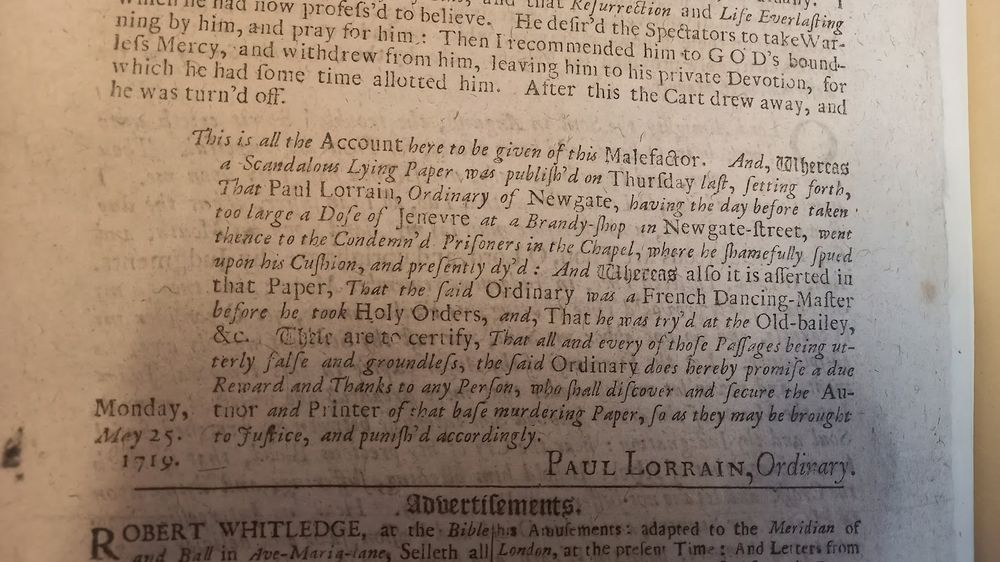 which he had now profeſs'd to believe. He deſir'd the Spectators to take War-
ning by him, and pray for him: Then I recommended him to GOD's bound-
leſs Mercy, and withdrew from him, leaving him to his private Devotion, for
which he had ſome time allotted him. After this the Cart drew away, and
he was turn'd off.
This is all the Account here to be given of this Malefactor. And, Whereas
a Scandalous Lying Paper was publiſh'd on Thurſday laſt, ſetting forth,
That Paul Lorrain, Ordinary of Newgate, having the day before taken
too large a Doſe of Jenevre at a Brandy-ſhop in Newgate-ſtreet, went
thence to the Condemn'd Priſoners in the Chapel, where he ſhamefully ſpued
upon his Cuſhion, and preſently dy'd: And Whereas alſo it is aſſerted in
that Paper, That the ſaid Ordinary was a French Dancing-Maſter
before he took Holy Orders, and, That he was try'd at the Old-bailey,
&c. Theſe are to certify, That all and every of thoſe Paſſages being ut-
terly falſe and groundleſs, the ſaid Ordinary does hereby promiſe a due
Reward and Thanks to any Perſon, who ſhall diſcover and ſecure the Au-
Monday, tnor and Printer of that baſe murdering Paper, ſo as they may be brought
May 25. to Juſtice, and puniſh'd accordingly.
1719. PAUL LORRAIN, Ordinary.
Advertiſements.
ROBERT WHITLEDGE, at the Bible
and Ball in Ave-Maria-lane, Selleth all
his Amuſements: adapted to the Meridian of
London, at the preſent Time: And Letters from